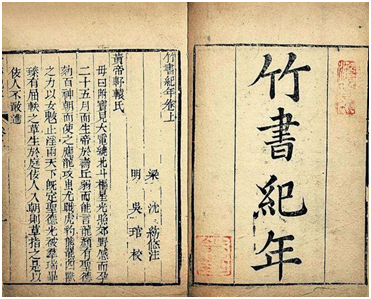 竹書紀年
竹書紀年卷上
梁 沈約注
明 吳琯校
黃帝軒轅氏
母曰附寶見大電繞北斗樞星光照郊野感而孕
二十五月而生帝於壽丘弱而能言龍顏有聖德
劾百神朝而使之應龍攻蚩尤戰虎豹熊羆四獸
之力以女魃止淫雨天下既定聖德光被群瑞畢
臻有屈軼之草生於庭佞人入朝則草指之是以
佞人不敢進